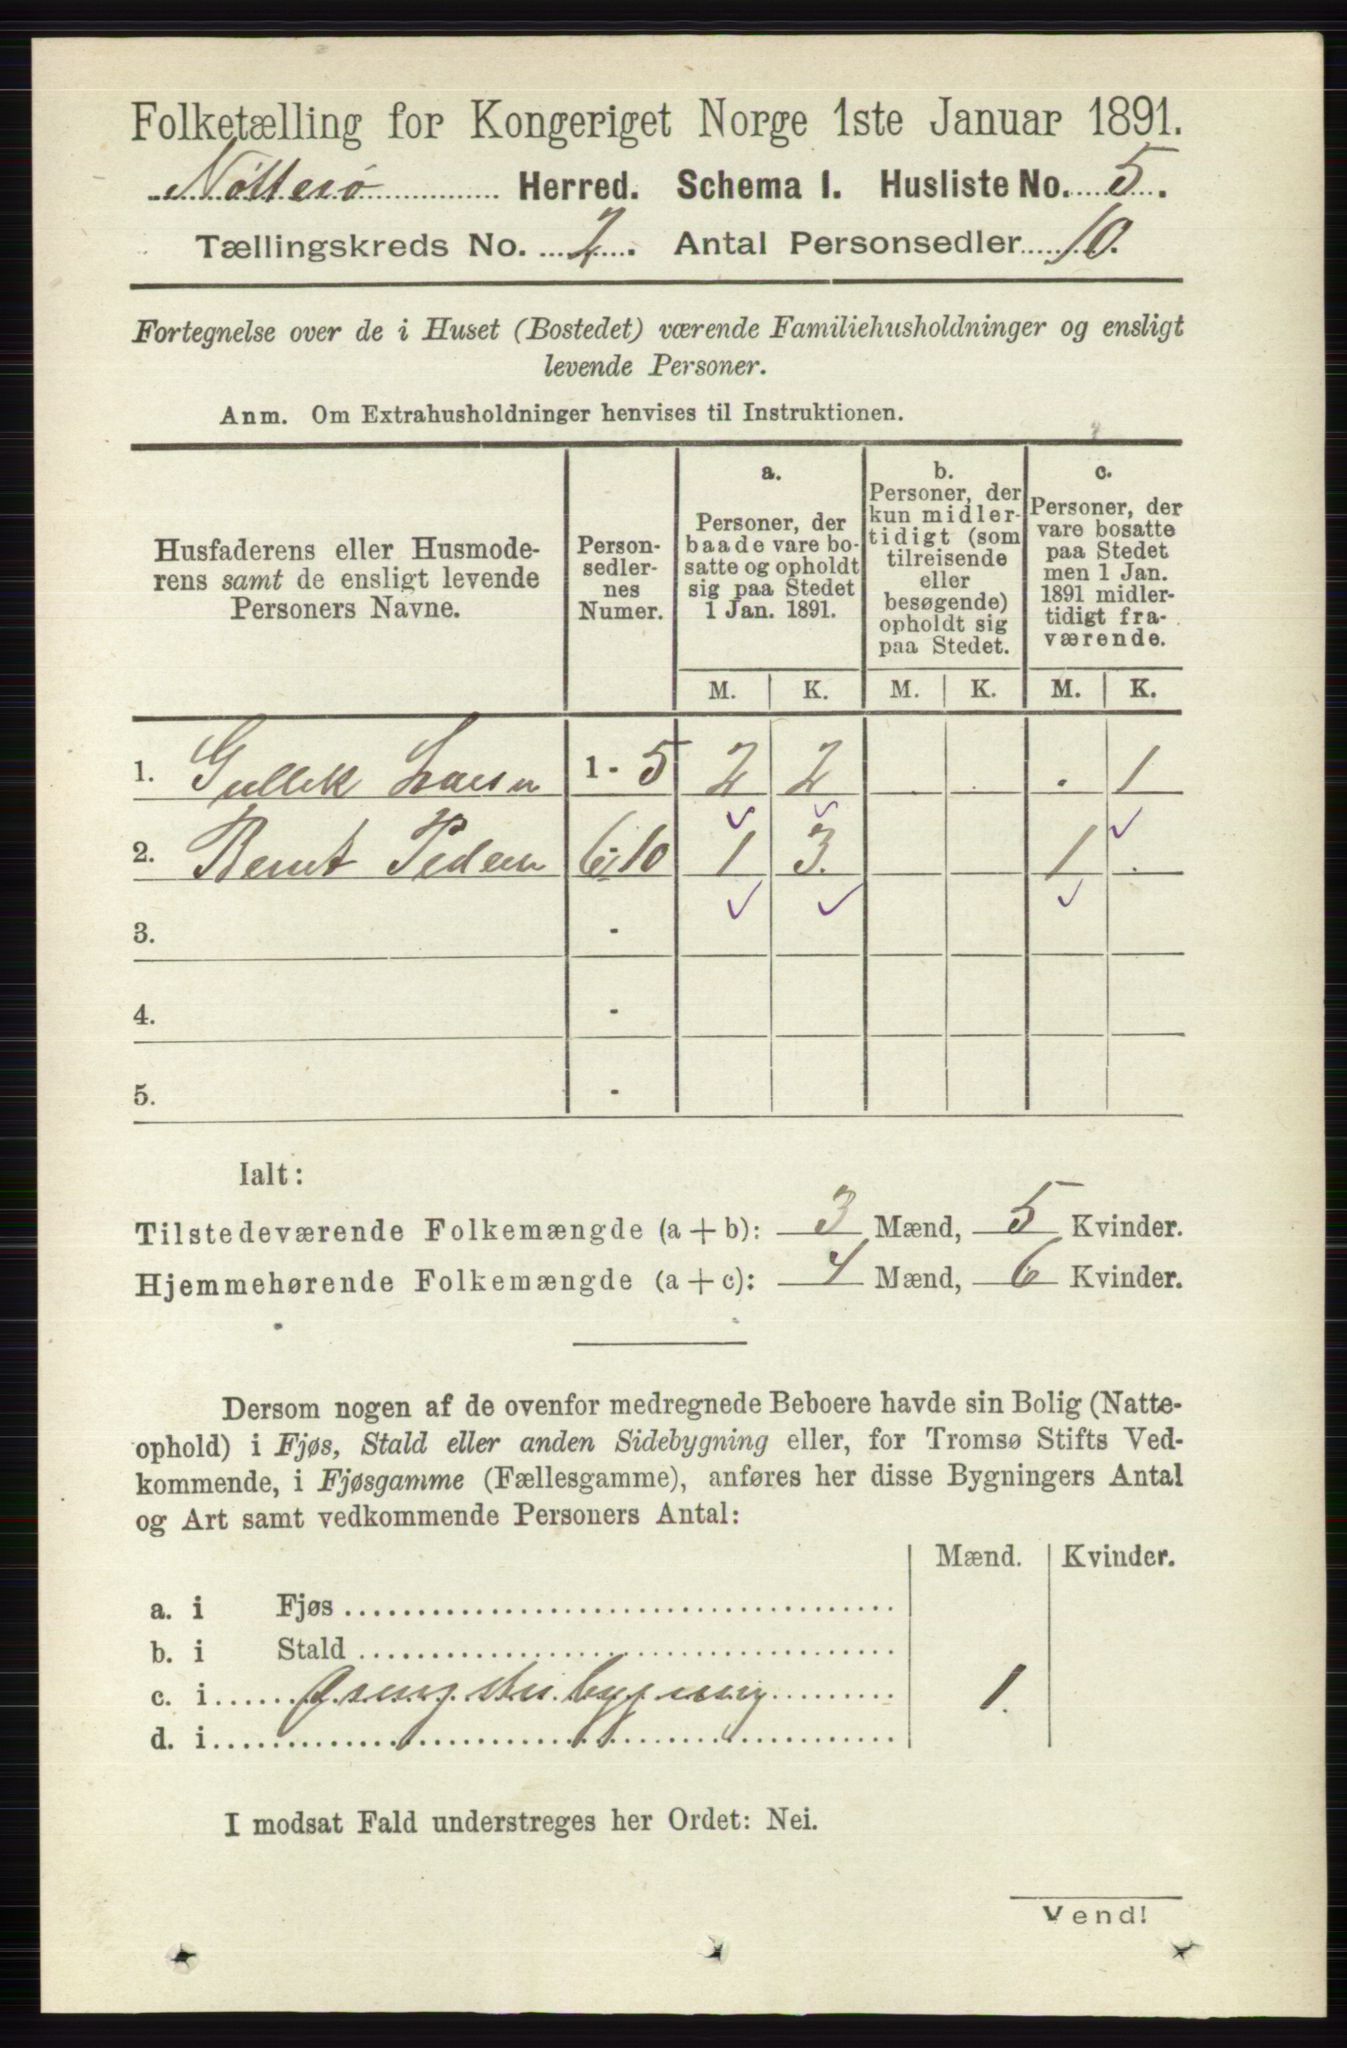 Folketælling for Kongeriget Norge 1ste Januar 1891.
Nötterö Herred. Schema I. Husliste No. 5.
Tællingskreds No. 2. Antal Personsedler 10.
Fortegnelse over de i Huset (Bostedet) værende Familiehusholdninger og ensligt
levende Personer.
Anm. Om Extrahusholdninger henvises til Instruktionen.
Husfaderens eller Husmode-
rens samt de ensligt levende
Personers Navne.
Person-
sedler-
nes
Numer.
a.
Personer, der
baade vare bo-
satte og opholdt
sig paa Stedet
1 Jan. 1891.
b.
Personer, der
kun midler-
tidigt (som
tilreisende
eller
besøgende)
opholdt sig
paa Stedet.
c.
Personer, der
vare bosatte
paa Stedet
men 1 Jan.
1891 midler-
tidigt fra-
værende.
M. K. M. K. M. K.
1. Gullik Larsen 1 - 5 2 2 . . . 1
2. Bernt Pedersen 6-10 1 3. 1 .
3. -
4. -
5. -
Ialt:
Tilstedeværende Folkemængde (a + b): 3 Mænd, 5 Kvinder.
Hjemmehørende Folkemængde (a + c): 4 Mænd, 6 Kvinder.
Dersom nogen af de ovenfor medregnede Beboere havde sin Bolig (Natte-
ophold) i Fjøs, Stald eller anden Sidebygning eller, for Tromsø Stifts Ved-
kommende, i Fjøsgamme (Fællesgamme), anføres her disse Bygningers Antal
og Art samt vedkommende Personers Antal:
Mænd. Kvinder.
a. i Fjøs
b. i Stald
c. i bygning 1.
d. i
I modsat Fald understreges her Ordet: Nei.
Vend!